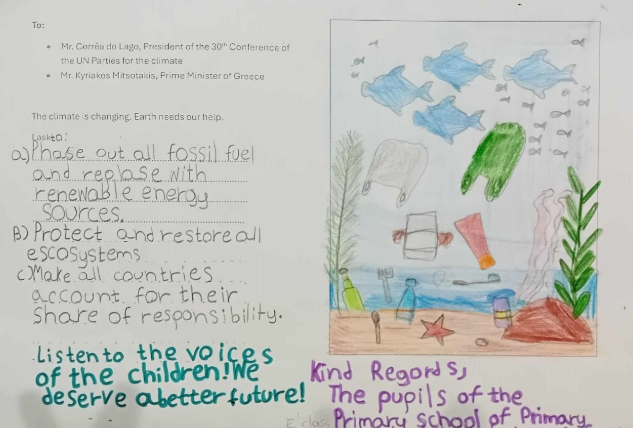 To:
Mr. Corrêa do Lago, President of the 30th Conference of
the UN Parties for the climate
Mr. Kyriakos Mitsotakis, Prime Minister of Greece
The climate is changing. Earth needs our help.
I ask to:
a) Phase out all fossil fuel
and replase with
renewable energy
sources.
B) Protect and restore all
escosystems
c) Make all countries
account for their
share of responsibility.
Listen to the voices
of the children! We
deserve a better future!
Kind Regards,
The pupils of the
E' class Primary School of Primary